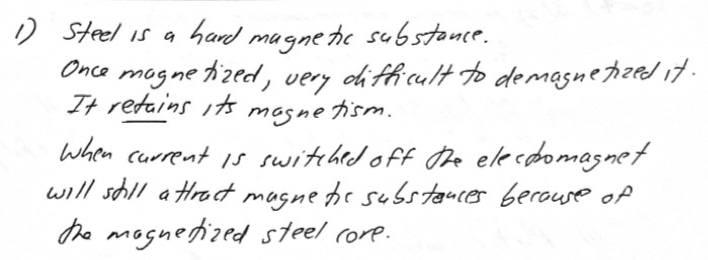 1) Steel is a hard magnetic substance.
Once magnetized, very difficult to demagnetized it.
It retains its magnetism.
When current is switched off the electromagnet
will still attract magnetic substances because of
the magnetized steel core.